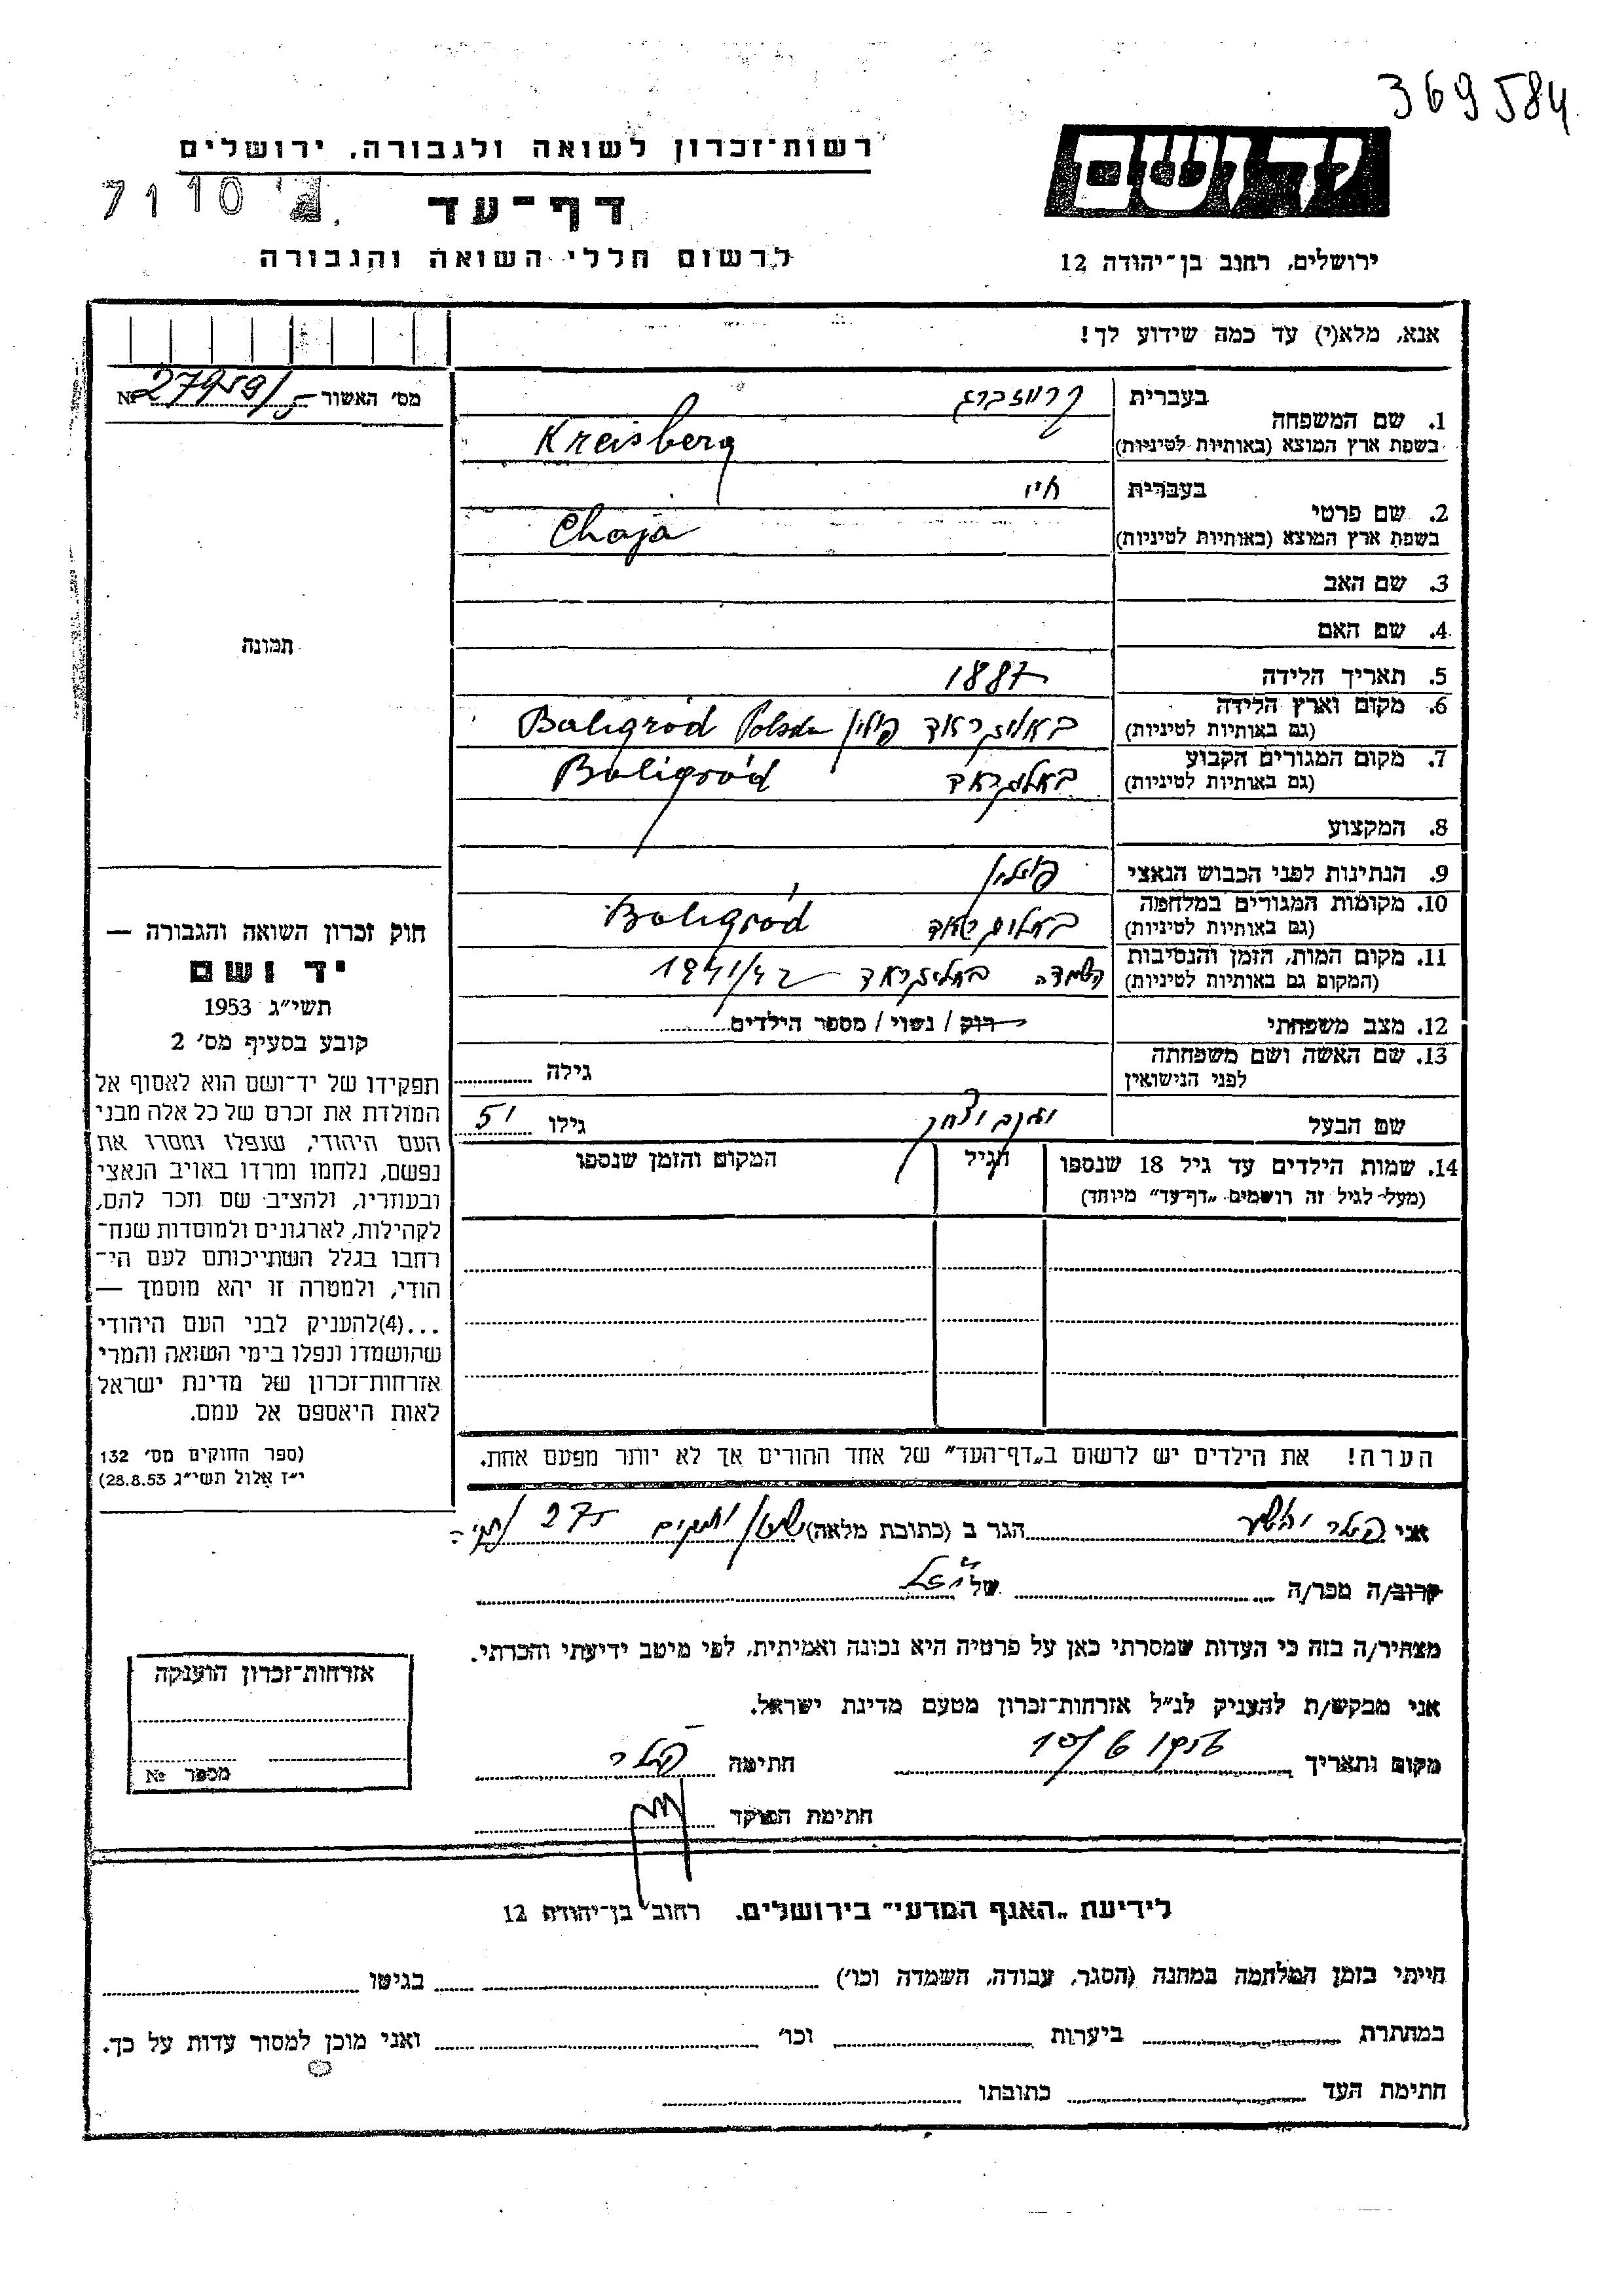 369584
רשות-זכרון לשואה ולגבורה, ירושלים
יד ושם
7110
דף-עד
לרשום חללי השואה והגבורה
ירושלים, רחוב בן-יהודה 12
אנא, מלא(י) עד כמה שידוע לך!
מס' האשור № 27959/5
1. שם המשפחה
בעברית
בשפת ארץ המוצא (באותיות לטיניות) Kreisberg
2. שם פרטי
בעברית חיי
בשפת ארץ המוצא (באותיות לטיניות) Chaja
3. שם האב
4. שם האם
תמונה
5. תאריך הלידה 1887
6. מקום וארץ הלידה
(גם באותיות לטיניות) באליגראד פולין Baligród Polska
7. מקום המגורים הקבוע
(גם באותיות לטיניות) באליגראד Baligród
8. המקצוע
9. הנתינות לפני הכבוש הנאצי פולין
10. מקומות המגורים במלחמה
(גם באותיות לטיניות) Baligród
11. מקום המות, הזמן והנסיבות
(המקום גם באותיות לטיניות) השמדה באליגראד 1941/42
12. מצב משפחתי רוק / נשוי / מספר הילדים
13. שם האשה ושם משפחתה
לפני הנישואין
גילה
שם הבעל
גילו 51
14. שמות הילדים עד גיל 18 שנספו
(מעל לגיל זה רושמים „דף-עד" מיוחד)
הגיל
המקום והזמן שנספו
הערה! את הילדים יש לרשום ב„דף-העד" של אחד ההורים אך לא יותר מפעם אחת.
חוק זכרון השואה והגבורה —
יד ושם
תשי"ג 1953
קובע בסעיף מס' 2
תפקידו של יד-ושם הוא לאסוף אל
המולדת את זכרם של כל אלה מבני
העם היהודי, שנפלו ומסרו את
נפשם, נלחמו ומרדו באויב הנאצי
ובעוזריו, ולהציב שם וזכר להם,
לקהילות, לארגונים ולמוסדות שנח-
רחבו בגלל השתייכותם לעם הי-
הודי, ולמטרה זו יהא מוסמך —
...(4)להעניק לבני העם היהודי
שהושמדו ונפלו בימי השואה והמרי
אזרחות-זכרון של מדינת ישראל
לאות היאספם אל עמם.
(ספר החוקים מס' 132
י"ז אלול תשי"ג 28.8.53)
אני הגר ב (כתובת מלאה) 275
קרוב/ה מכר/ה של
מצהיר/ה בזה כי העדות שמסרתי כאן על פרטיה היא נכונה ואמיתית, לפי מיטב ידיעתי והכרתי.
אני מבקש/ת להעניק לנ"ל אזרחות-זכרון מטעם מדינת ישראל.
מקום ותאריך חתימה
חתימת הפוקד
אזרחות-זכרון הוענקה
מספר №
לידיעת „האגף המדעי" בירושלים. רחוב בן-יהודה 12
הייתי בזמן המלחמה במחנה (הסגר, עבודה, השמדה וכו') בגיטו
במחתרת ביערות וכו' ואני מוכן למסור עדות על כך.
חתימת העד כתובתו